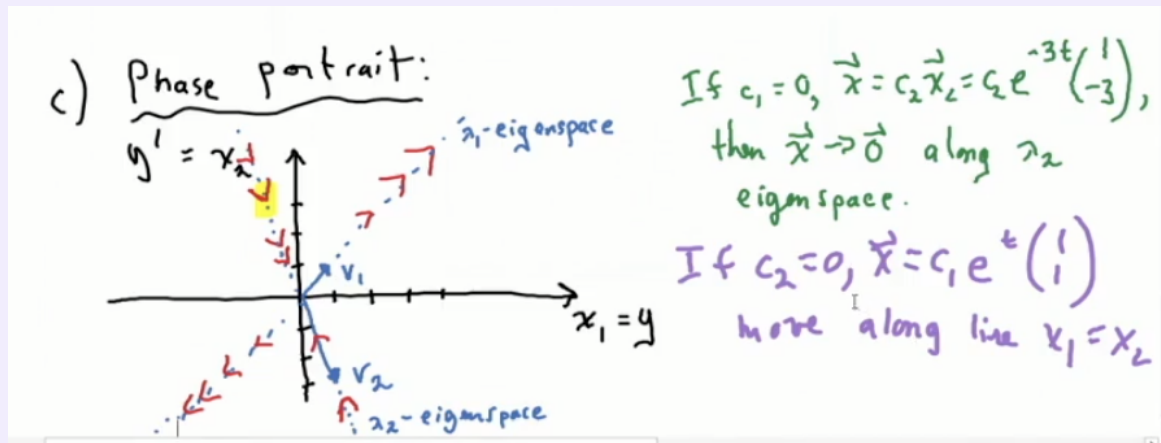 c) Phase portrait:
y' = x₂
λ₁-eigenspace
v₁
x₁ = y
v₂
λ₂-eigenspace
If c₁ = 0, x⃗ = c₂x⃗₂ = c₂e⁻³ᵗ(1 -3),
then x⃗ → 0⃗ along λ₂
eigenspace.
If c₂ = 0, x⃗ = c₁eᵗ(1 1)
move along line x₁ = x₂